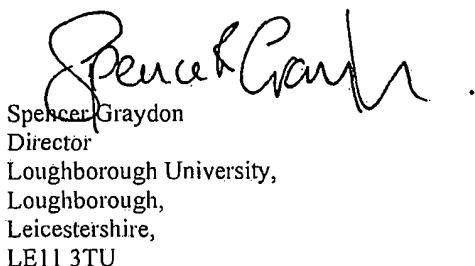 Spencer Graydon
Spencer Graydon
Director
Loughborough University,
Loughborough,
Leicestershire,
LE11 3TU